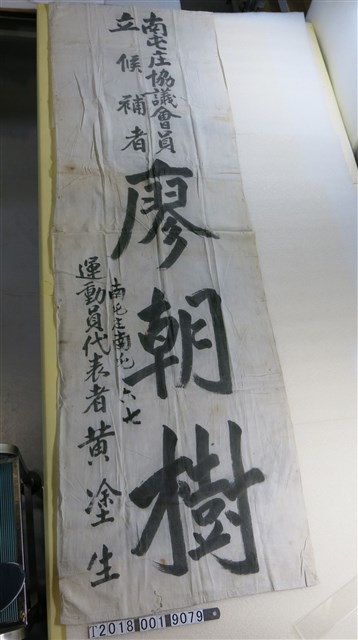 南屯庄協議會員
立候補者
廖朝樹
南屯庄南屯六七
運動員代表者黄塗生
T2018 001 9079